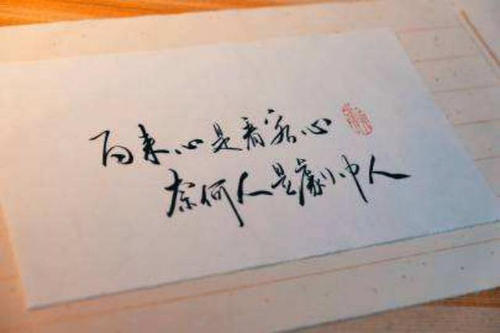 向来心是看客心
奈何人是劇中人